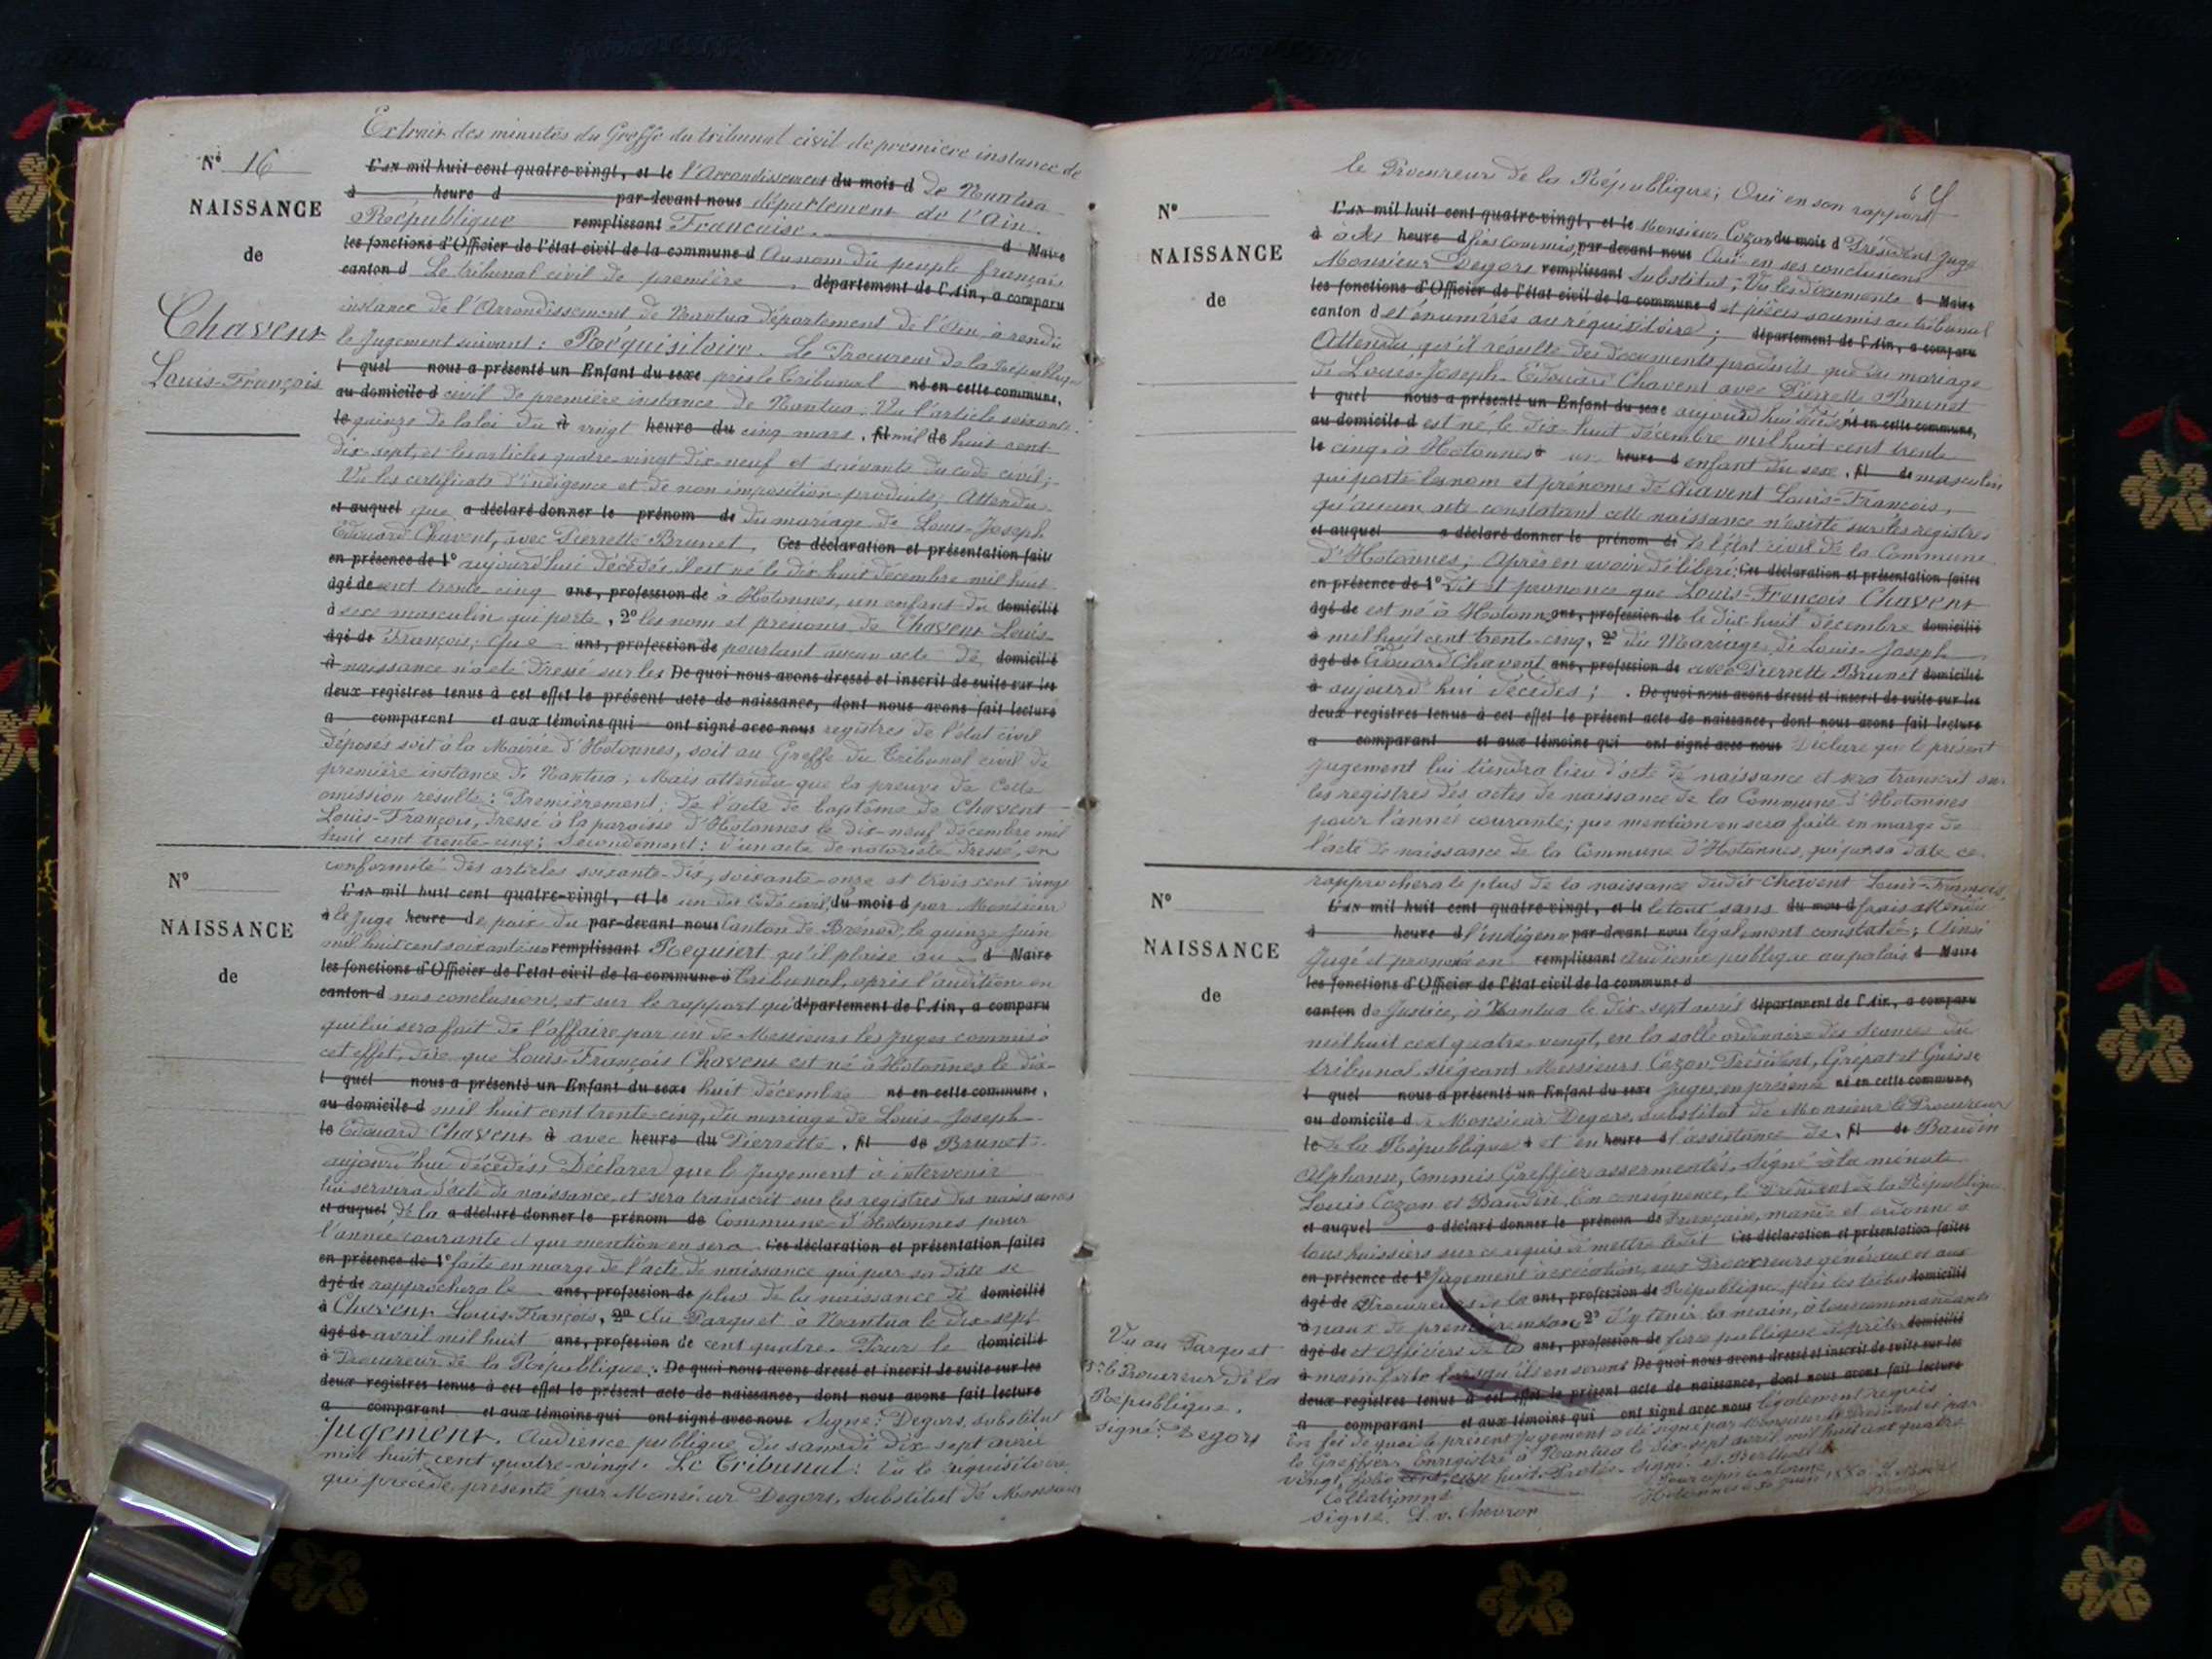 Extrait des minutes du Greffe du tribunal civil de première instance de
N° 16
L'an mil huit cent quatre-vingt, et le l'Arrondissement du mois d de Nantua
à heure d par-devant nous département de l'Ain.
NAISSANCE
République remplissant Française. d Maire
les fonctions d'Officier de l'état civil de la commune d Au nom du peuple français
de
canton d Le tribunal civil de première , département de l'Ain, a comparu
instance de l'Arrondissement de Nantua département de l'Ain à rendu
Chavent
le Jugement suivant : Réquisitoire. Le Procureur de la République
Louis-François
l quel nous a présenté un Enfant du sexe près le Tribunal né en cette commune,
au domicile d civil de première instance de Nantua. Vu l'article soixante-
le quinze de la loi du à vingt heure du cinq mars , fil mil de huit cent
dix-sept, et les articles quatre-vingt dix-neuf et suivants du code civil ;
Vu les certificats d'indigence et de non imposition produits ; Attendu
et auquel que a déclaré donner le prénom de du mariage de Louis-Joseph
Edouard Chavent, avec Pierrette Brunet, Ces déclaration et présentation faites
en présence de 1° aujourd'hui décédés, il est né le dix huit décembre mil huit
âgé de cent trente cinq ans, profession de à Hotonnes, un enfant du domicilié
à sexe masculin qui porte , 2° les nom et prénoms de Chavent Louis-
âgé de François ; Que ans, profession de pourtant aucun acte de domicilié
à naissance n'a été dressé sur les De quoi nous avons dressé et inscrit de suite sur les
deux registres tenus à cet effet le présent acte de naissance, dont nous avons fait lecture
a comparant et aux témoins qui ont signé avec nous registres de l'état civil
déposés soit à la Mairie d'Hotonnes, soit au Greffe du Tribunal civil de
première instance de Nantua ; Mais attendu que la preuve de cette
omission résulte : Premièrement ; de l'acte de baptême de Chavent
Louis-François, dressé à la paroisse d'Hotonnes le dix-neuf décembre mil
huit cent trente-cinq ; Secondement : d'un acte de notoriété dressé, en
conformité des articles soixante-dix, soixante-onze et trois cent vingt
N°
L'an mil huit cent quatre-vingt, et le un du Code civil, du mois d par Monsieur
à le Juge heure de paix du par-devant nous Canton de Brénod, le quinze juin
NAISSANCE
mil huit cent soixante remplissant Requiert qu'il plaise au d Maire
les fonctions d'Officier de l'état civil de la commune d Tribunal, après l'audition en
de
canton d nos conclusion, et sur le rapport qui département de l'Ain, a comparu
qui lui sera fait de l'affaire par un de Messieurs les Juges commis à
cet effet, dire que Louis-François Chavent est né à Hotonnes le dix-
l quel nous a présenté un Enfant du sexe huit décembre né en cette commune,
au domicile d mil huit cent trente-cinq, du mariage de Louis-Joseph
le Edouard Chavent à avec heure du Pierrette , fil de Brunet
aujourd'hui décédés ; Déclarer que le Jugement à intervenir
lui servira d'acte de naissance, et sera transcrit sur les registres des naissances
et auquel de la a déclaré donner le prénom de Commune d'Hotonnes pour
l'année courante et que mention en sera Ces déclaration et présentation faites
en présence de 1° faite en marge de l'acte de naissance qui par sa date se
âgé de rapprochera le ans, profession de plus de la naissance de domicilié
à Chavent Louis-François, 2° Au Parquet à Nantua le dix-sept
âgé de avril mil huit ans, profession de cent quatre. Pour le domicilié
à Procureur de la République. De quoi nous avons dressé et inscrit de suite sur les
deux registres tenus à cet effet le présent acte de naissance, dont nous avons fait lecture
a comparant et aux témoins qui ont signé avec nous Signé : Degors, substitut
Jugement. Audience publique du samedi dix-sept avril
mil huit cent quatre-vingt. Le Tribunal : Vu le réquisitoire
qui précède, présenté par Monsieur Degors, substitut de Monsieur
le Procureur de la République ; Ouï en son rapport
N°
L'an mil huit cent quatre-vingt, et le Monsieur Cozon du mois d Président Juge
à à cet heure d fins commis, par-devant nous Ouï en ses conclusions
NAISSANCE
Monsieur Degors remplissant substitut ; Vu les documents d Maire
les fonctions d'Officier de l'état civil de la commune d et pièces soumis au tribunal
de
canton d et énumérés au réquisitoire ; département de l'Ain, a comparu
Attendu qu'il résulte des documents produits que du mariage
de Louis-Joseph-Edouard Chavent avec Pierrette Brunet
l quel nous a présenté un Enfant du sexe aujourd'hui né en cette commune,
au domicile d est né, le dix-huit décembre mil huit cent trente
le cinq à Hotonnes à un heure d enfant du sexe , fil de masculin
qui porte les nom et prénoms de Chavent Louis-François,
qu'aucun acte constatant cette naissance n'existe sur les registres
et auquel a déclaré donner le prénom de de l'état civil de la Commune
d'Hotonnes ; Après en avoir délibéré ; Ces déclaration et présentation faites
en présence de 1° Dit et prononce que Louis-François Chavent
âgé de est né à Hotonnes ans, profession de le dix-huit décembre domicilié
à mil huit cent trente-cinq, 2° du Mariage de Louis-Joseph
âgé de Edouard Chavent ans, profession de avec Pierrette Brunet domicilié
à aujourd'hui décédés ; . De quoi nous avons dressé et inscrit de suite sur les
deux registres tenus à cet effet le présent acte de naissance, dont nous avons fait lecture
a comparant et aux témoins qui ont signé avec nous Déclare que le présent
jugement lui tiendra lieu d'acte de naissance et sera transcrit sur
les registres des actes de naissance de la Commune d'Hotonnes
pour l'année courante ; que mention en sera faite en marge de
l'acte de naissance de la Commune d'Hotonnes, qui par sa date se
rapprochera le plus de la naissance dudit Chavent Louis-François,
N°
L'an mil huit cent quatre-vingt, et le le tout sans du mois d frais attendu
à heure d l'indigence par-devant nous légalement constatée ; Ainsi
NAISSANCE
Jugé et prononcé en remplissant audience publique au palais d Maire
les fonctions d'Officier de l'état civil de la commune d
de
canton de Justice, à Nantua le dix-sept avril département de l'Ain, a comparu
mil huit cent quatre-vingt, en la salle ordinaire des séances du
tribunal, siégeant Messieurs Cozon, Président, Grépat et Guisse
l quel nous a présenté un Enfant du sexe Juges, en présence né en cette commune,
au domicile d Monsieur Degors, substitut de Monsieur le Procureur
le de la République à et en heure d l'assistance de , fil de Baudin
Alphonse, Commis Greffier assermenté. Signé à la minute
Louis Cozon et Baudin. En conséquence, le Président de la République
et auquel a déclaré donner le prénom de Française, mande et ordonne à
tous huissiers sur ce requis de mettre ledit Ces déclaration et présentation faites
en présence de 1° Jugement à exécution, aux Procureurs généraux et aux
âgé de Procureurs de la ans, profession de République près les tribu domicilié
à naux de première instance 2° d'y tenir la main, à tous commandants
âgé de et officiers de la ans, profession de force publique de prêter domicilié
Vu au Parquet
à main forte lorsqu'ils en seront De quoi nous avons dressé et inscrit de suite sur les
Pr le Procureur de la
deux registres tenus à cet effet le présent acte de naissance, dont nous avons fait lecture
République.
a comparant et aux témoins qui ont signé avec nous légalement requis
signé : Degors
En foi de quoi le présent Jugement a été signé par Monsieur le Président et par
le Greffier. Enregistré à Nantua le dix-sept avril mil huit cent quatre
vingt, folio case huit. Signé
Pour copie conforme
Collationné
Hotonnes le 30 Juin 1880 Le Maire
signé. Chevron